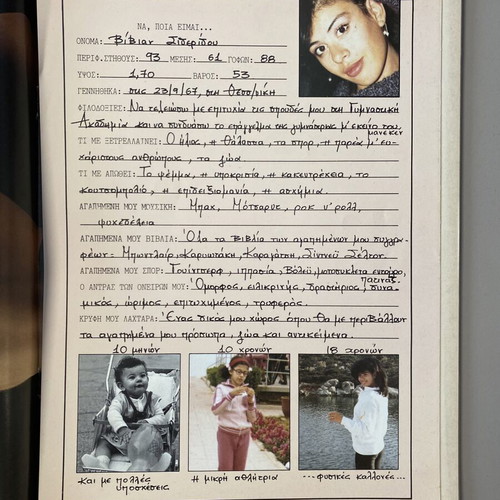 ΝΑ, ΠΟΙΑ ΕΙΜΑΙ...
ΟΝΟΜΑ: Βίβιαν Σιδερίδου
ΠΕΡΙΦ.ΣΤΗΘΟΥΣ: 93 ΜΕΣΗΣ: 61 ΓΟΦΩΝ: 88
ΥΨΟΣ: 1,70 ΒΑΡΟΣ: 53
ΓΕΝΝΗΘΗΚΑ: στις 23/9/67, στη Θεσσ/νίκη
ΦΙΛΟΔΟΞΙΕΣ: Να τελειώσω με επιτυχία τις σπουδές μου στη Γυμναστική
Ακαδημία και να συνδυάσω το επάγγελμα της γυμνάστριας μ' εκείνο του
μανεκέν
ΤΙ ΜΕ ΞΕΤΡΕΛΛΑΙΝΕΙ: Ο ήλιος, η θάλασσα, τα σπορ, η παρέα μ' ευ-
χάριστους ανθρώπους, τα ζώα.
ΤΙ ΜΕ ΑΠΩΘΕΙ: Το ψέμμα, η υποκρισία, η κακεντρέχεια, το
κουτσομπολιό, η επιδειξιομανία, η ασχήμια.
ΑΓΑΠΗΜΕΝΗ ΜΟΥ ΜΟΥΣΙΚΗ: Μπαχ, Μότσαρτ, ροκ ν' ρολλ,
ψυχεδέλεια
ΑΓΑΠΗΜΕΝΑ ΜΟΥ ΒΙΒΛΙΑ: Όλα τα βιβλία των αγαπημένων μου συγγρα-
φέων: Μπωντλαίρ, Καρυωτάκη, Καραγάτση, Σίντνεϋ Σέλτον.
ΑΓΑΠΗΜΕΝΑ ΜΟΥ ΣΠΟΡ: Γουίντσερφ, ιππασία, βόλεϋ, μοτοσυκλέτα εντούρο,
πατινάζ.
Ο ΑΝΤΡΑΣ ΤΩΝ ΟΝΕΙΡΩΝ ΜΟΥ: Όμορφος, ειλικρινής, δραστήριος, δυνα-
μικός, ώριμος, επιτυχημένος, τρυφερός.
ΚΡΥΦΗ ΜΟΥ ΛΑΧΤΑΡΑ: Ένας δικός μου χώρος όπου θα με περιβάλλουν
τα αγαπημένα μου πρόσωπα, ζώα και αντικείμενα.
10 μηνών 10 χρονών 18 χρονών
και με πολλές
υποσχέσεις
η μικρή αθλήτρια
...φυσικές καλλονές...